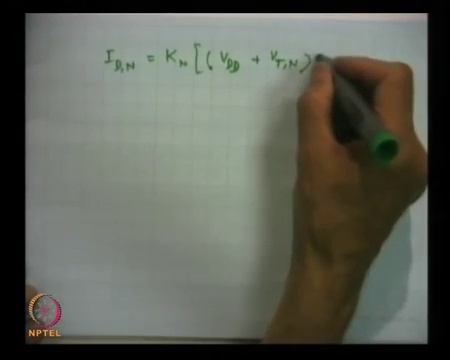 I_{D,N} = K_N [ ( V_{DD} + V_{T,N} )
NPTEL